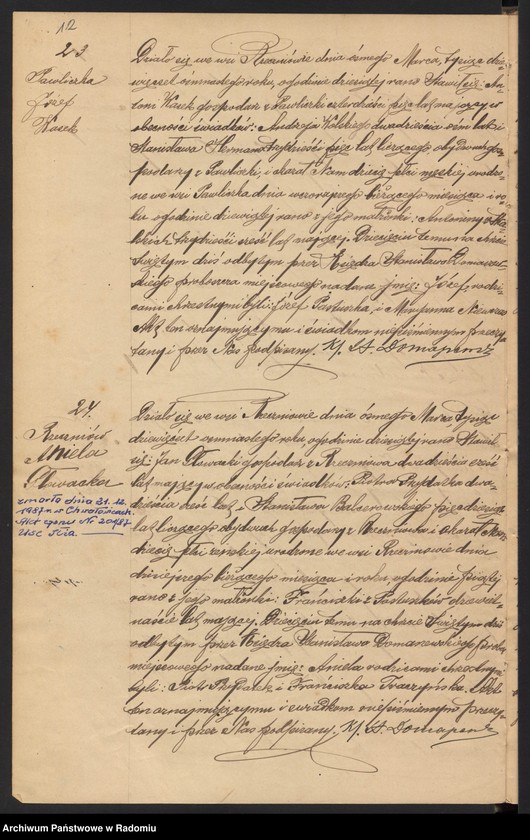 112
23.
Pawliczka
Józef
Wasek
Działo się we wsi Rzeczniowie dnia ósmego Marca tysiąc dzie-
więćset ośmnastego roku, o godzinie dziesiątej rano. Stawił się: An-
toni Wasek gospodarz z Pawliczki czterdzieści pięć lat mający w
obecności świadków: Andrzeja Wolskiego dwadzieścia osiem lat i
Stanisława trzydzieści pięć lat liczącego obydwóch gos-
podarzy z Pawliczki, i okazał Nam dziecię płci męskiej urodzo-
ne we wsi Pawliczka dnia wczorajszego bieżącego miesiąca i ro-
ku o godzinie dziewiątej rano z jego małżonki: Antoniny z
trzydzieści sześć lat mającej. Dziecięciu temu na Chrzcie
Świętym dziś odbytym przez Księdza Stanisława Domaszew-
skiego proboszcza miejscowego nadane imię: Józef, rodzi-
cami chrzestnymi byli: Józef Pastuszka i Maryanna
Akt ten oznajmującemu i świadkom niepiśmiennym przeczy-
tany i przez Nas podpisany. Kś. St. Domaszewski
24.
Rzeczniów
Aniela
Słowacka
zmarła dnia 31.12.
1987 w Chwałowicach.
Akt zgonu Nr 20/87
USC Iłża
Działo się we wsi Rzeczniowie dnia ósmego Marca tysiąc
dziewięćset ośmnastego roku, o godzinie dziesiątej rano. Stawił
się: Jan Słowacki gospodarz z Rzeczniowa dwadzieścia sześć
lat mający w obecności świadków: Piotra dwa-
dzieścia sześć lat i Stanisława Balcerowskiego pięćdziesiąt
lat liczącego obydwóch gospodarzy z Rzeczniowa i okazał Nam
dziecię płci żeńskiej urodzone we wsi Rzeczniowie dnia
dzisiejszego bieżącego miesiąca i roku, o godzinie piątej
rano z jego małżonki: Franciszki z Pastuszków dziewięt-
naście lat mającej. Dziecięciu temu na chrzcie Świętym dziś
odbytym przez Księdza Stanisława Domaszewskiego prob.
miejscowego nadane imię: Aniela rodzicami chrzestnymi
byli: Piotr i Franciszka Traczyńska. Akt
ten oznajmującemu i świadkom niepiśmiennym przeczy-
tany i przez Nas podpisany. Kś. St. Domaszewski
Archiwum Państwowe w Radomiu